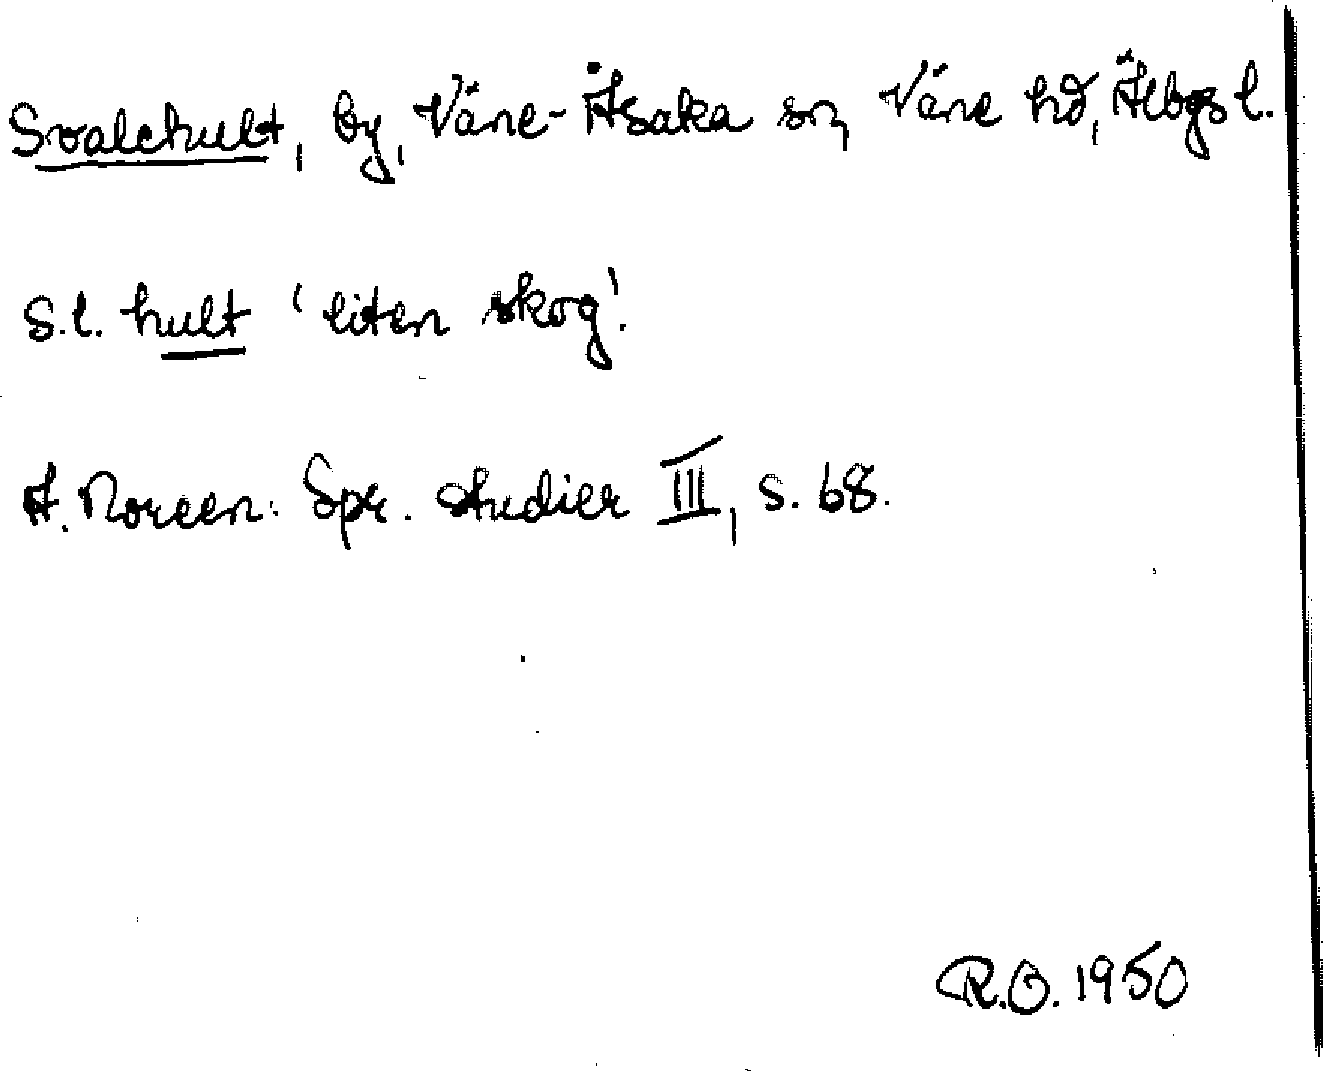 Svalehult, by, Väne-Åsaka sn, Väne hd, Älbgs l.
S.l. hult 'liten skog'.
A. Noreen: Spr. studier III, s. 68.
R.O. 1950